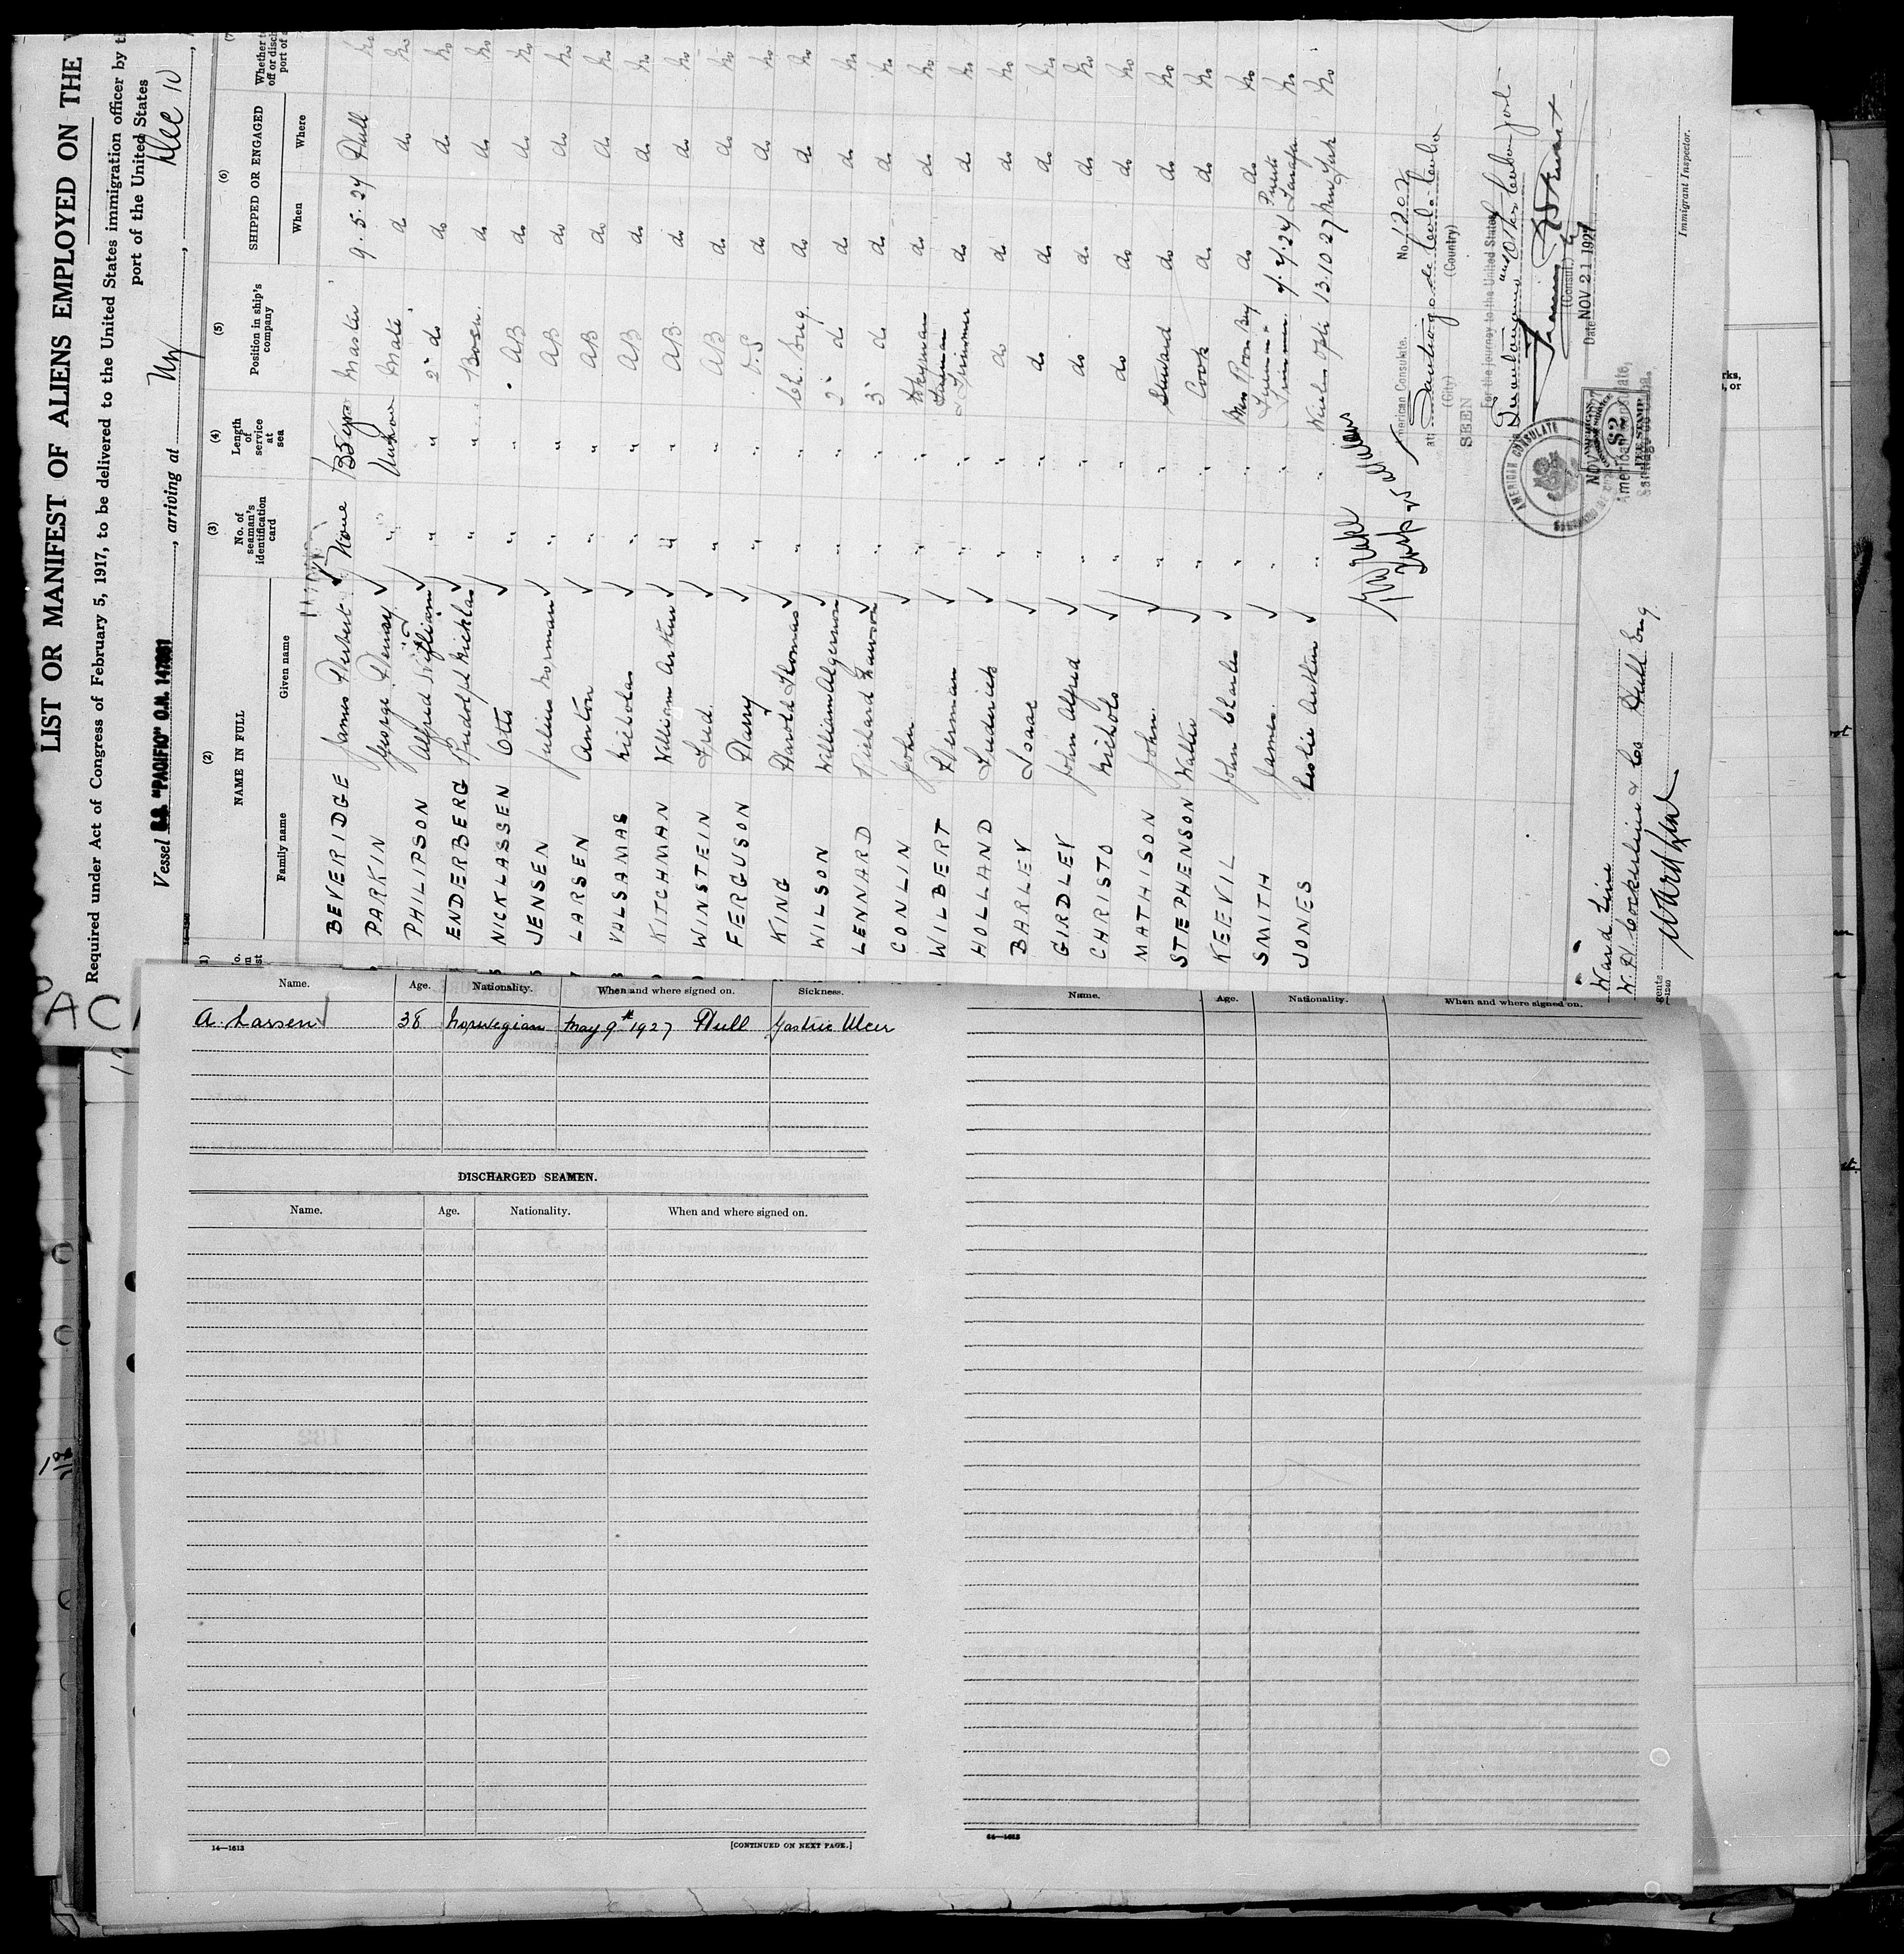 LIST OR MANIFEST OF ALIENS EMPLOYED ON THE
Required under Act of Congress of February 5, 1917, to be delivered to the United States immigration officer by
port of the United States
Vessel S.S. "PACIFIC" O.N. , arriving at NY , Dec 10
(2) (3) (4) (5) (6)
NAME IN FULL No. of seaman's identification card Length of service at sea Position in ship's company SHIPPED OR ENGAGED
Family name Given name When Where
BEVERIDGE James Herbert None 35 yrs Master 9.5.27 Hull No
PARKIN George Henry " Unknown Mate do do No
PHILIPSON Alfred William " " 2d do do do No
ENDERBERG Rudolph Nicklas " " Bosn. do do No
NICKLASSEN Otto " " AB do do No
JENSEN Julius Norman " " AB do do No
LARSEN Anton " " AB do do No
VALSAMAS Nicholas " " AB do do No
KITCHMAN William Arthur " " AB do do No
WINSTEIN Fred. " " AB do do No
FERGUSON Harry " " O.S do do No
KING Harold Thomas " " Ch. Eng. do do No
WILSON William Algernon " " 2d do do do No
LENNARD Richard Lawson " " 3d do do do No
CONLIN John " " Dkyman do do No
WILBERT Herman " " Fireman & Trimmer do do No
HOLLAND Frederick " " do do do No
BARLEY Isaac " " do do do No
GIRDLEY John Alfred " " do do do No
CHRISTO Nichols " " do do do No
MATHISON John. " " Steward do do No
STEPHENSON Walter " " Cook do do No
KEEVIL John Charles " " Mess Room Boy do do No
SMITH James. " " Fireman & Trimmer. Punta Tarafa No
JONES Leslie Arthur " " Wireless Optr 13.10.27 New York No
American Consulate. No. 12020
at Santiago de Cuba - Cuba
(City) (Country)
SEEN
For the journey to the United States
Guantanamo and other Cuban port
(Consul.)
Date NOV 21 1927
AMERICAN CONSULATE
American Consulate,
Santiago de Cuba,
FEE STAMP
$2
Ward Line
W.H. Cockerline & Co Hull Eng.
Immigrant Inspector.
Name. Age. Nationality. When and where signed on. Sickness.
A. Larsen 38 Norwegian May 9th 1927 Hull Gastric Ulcer
DISCHARGED SEAMEN.
Name. Age. Nationality. When and where signed on.
14—1613 [CONTINUED ON NEXT PAGE.]
Name. Age. Nationality. When and where signed on.
14—1613